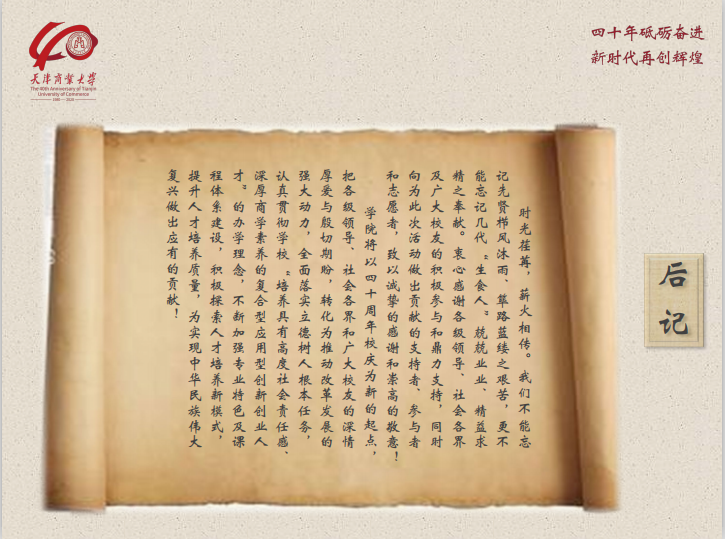 天津商业大学
The 40th Anniversary of Tianjin
University of Commerce
四十年砥砺奋进
新时代再创辉煌
后记
时光荏苒，薪火相传。我们不能忘
记先贤栉风沐雨、筚路蓝缕之艰苦，更不
能忘记几代“生食人”兢兢业业、精益求
精之奉献。衷心感谢各级领导、社会各界
及广大校友的积极参与和鼎力支持，同时
向为此次活动做出贡献的支持者、参与者
和志愿者，致以诚挚的感谢和崇高的敬意！
学院将以四十周年校庆为新的起点，
把各级领导、社会各界和广大校友的深情
厚爱与殷切期盼，转化为推动改革发展的
强大动力，全面落实立德树人根本任务，
认真贯彻学校“培养具有高度社会责任感、
深厚商学素养的复合型应用型创新创业人
才”的办学理念，不断加强专业特色及课
程体系建设，积极探索人才培养新模式，
提升人才培养质量，为实现中华民族伟大
复兴做出应有的贡献！